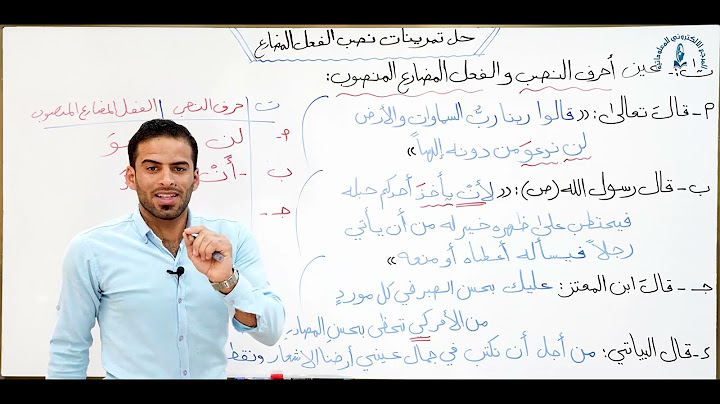 حل تمرينات نصب الفعل المضارع
ت١:- عين أحرف النصب والفعل المضارع المنصوب:
م- قال تعالى: «قالوا ربنا ربُّ السماوات والأرض
لن ندعوَ من دونه إلهاً»
ب- قال رسول الله (ص): «لأنْ يأخذَ أحدكم حبله
فيحتطب على ظهره خير له من أن يأتي
رجلاً فيسأله أعطاه أو منعه»
جـ- قال ابن المعتز: عليك بحسن الصبر في كل موردٍ
من الأمر كي تحظى بحسن المصادر
د- قال البياتي: من أجل أن نكتب في جمال عيني أرضنا الاشعار
ت | حرف النصب | الفعل المضارع المنصوب
م- لن
ب- أنْ
جـ-
المرجع الالكتروني للمعلوماتية